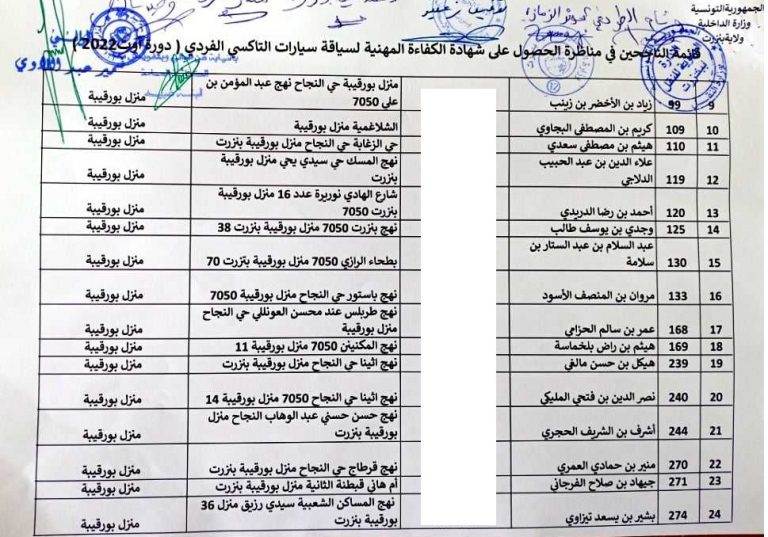 الجمهورية التونسية
وزارة الداخلية
ولاية بنزرت
قائمة الناجحين في مناظرة الحصول على شهادة الكفاءة المهنية لسياقة سيارات التاكسي الفردي ( دورة أوت2022)
9 99 زياد بن الأخضر بن زينب منزل بورقيبة حي النجاح نهج عبد المؤمن بن
علي 7050 منزل بورقيبة
10 109 كريم بن المصطفى البجاوي الشلاغمية منزل بورقيبة منزل بورقيبة
11 110 هيثم بن مصطفى سعدي حي الزغابة حي النجاح منزل بورقيبة بنزرت منزل بورقيبة
12 119 علاء الدين بن عبد الحبيب
الدلاجي نهج المسك حي سيدي يحي منزل بورقيبة
بنزرت منزل بورقيبة
13 120 أحمد بن رضا الدريدي شارع الهادي نويرة عدد 16 منزل بورقيبة
بنزرت 7050 منزل بورقيبة
14 125 وجدي بن يوسف طالب نهج بنزرت 7050 منزل بورقيبة بنزرت 38 منزل بورقيبة
15 130 عبد السلام بن عبد الستار بن
سلامة بطحاء الرازي 7050 منزل بورقيبة بنزرت 70 منزل بورقيبة
16 133 مروان بن المنصف الأسود نهج باستور حي النجاح منزل بورقيبة 7050 منزل بورقيبة
17 168 عمر بن سالم الحزامي نهج طربلس عند محسن العونللي حي النجاح
منزل بورقيبة منزل بورقيبة
18 169 هيثم بن راض بلخماسة نهج المكنين 7050 منزل بورقيبة 11 منزل بورقيبة
19 239 هيكل بن حسن مالفي نهج اثينا حي النجاح منزل بورقيبة بنزرت منزل بورقيبة
20 240 نصر الدين بن فتحي المليكي نهج اثينا حي النجاح 7050 منزل بورقيبة 14 منزل بورقيبة
21 244 أشرف بن الشريف الحجري نهج حسن حسني عبد الوهاب النجاح منزل
بورقيبة بنزرت منزل بورقيبة
22 270 منير بن حمادي العمري نهج قرطاج حي النجاح منزل بورقيبة بنزرت منزل بورقيبة
23 271 جيهاد بن صلاح الفرجاني أم هاني قبطنة الثانية منزل بورقيبة بنزرت منزل بورقيبة
24 274 بشير بن يسعد تيزاوي نهج المساكن الشعبية سيدي رزيق منزل 36
بورقيبة بنزرت منزل بورقيبة